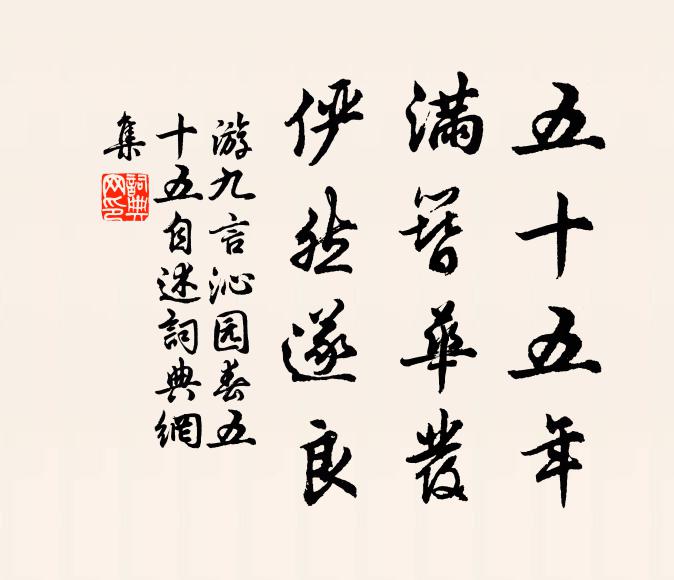 五十五年
滿簪華發
俨然遂良
游九言沁园春五
十五自述詞典網
集
詞典
网印